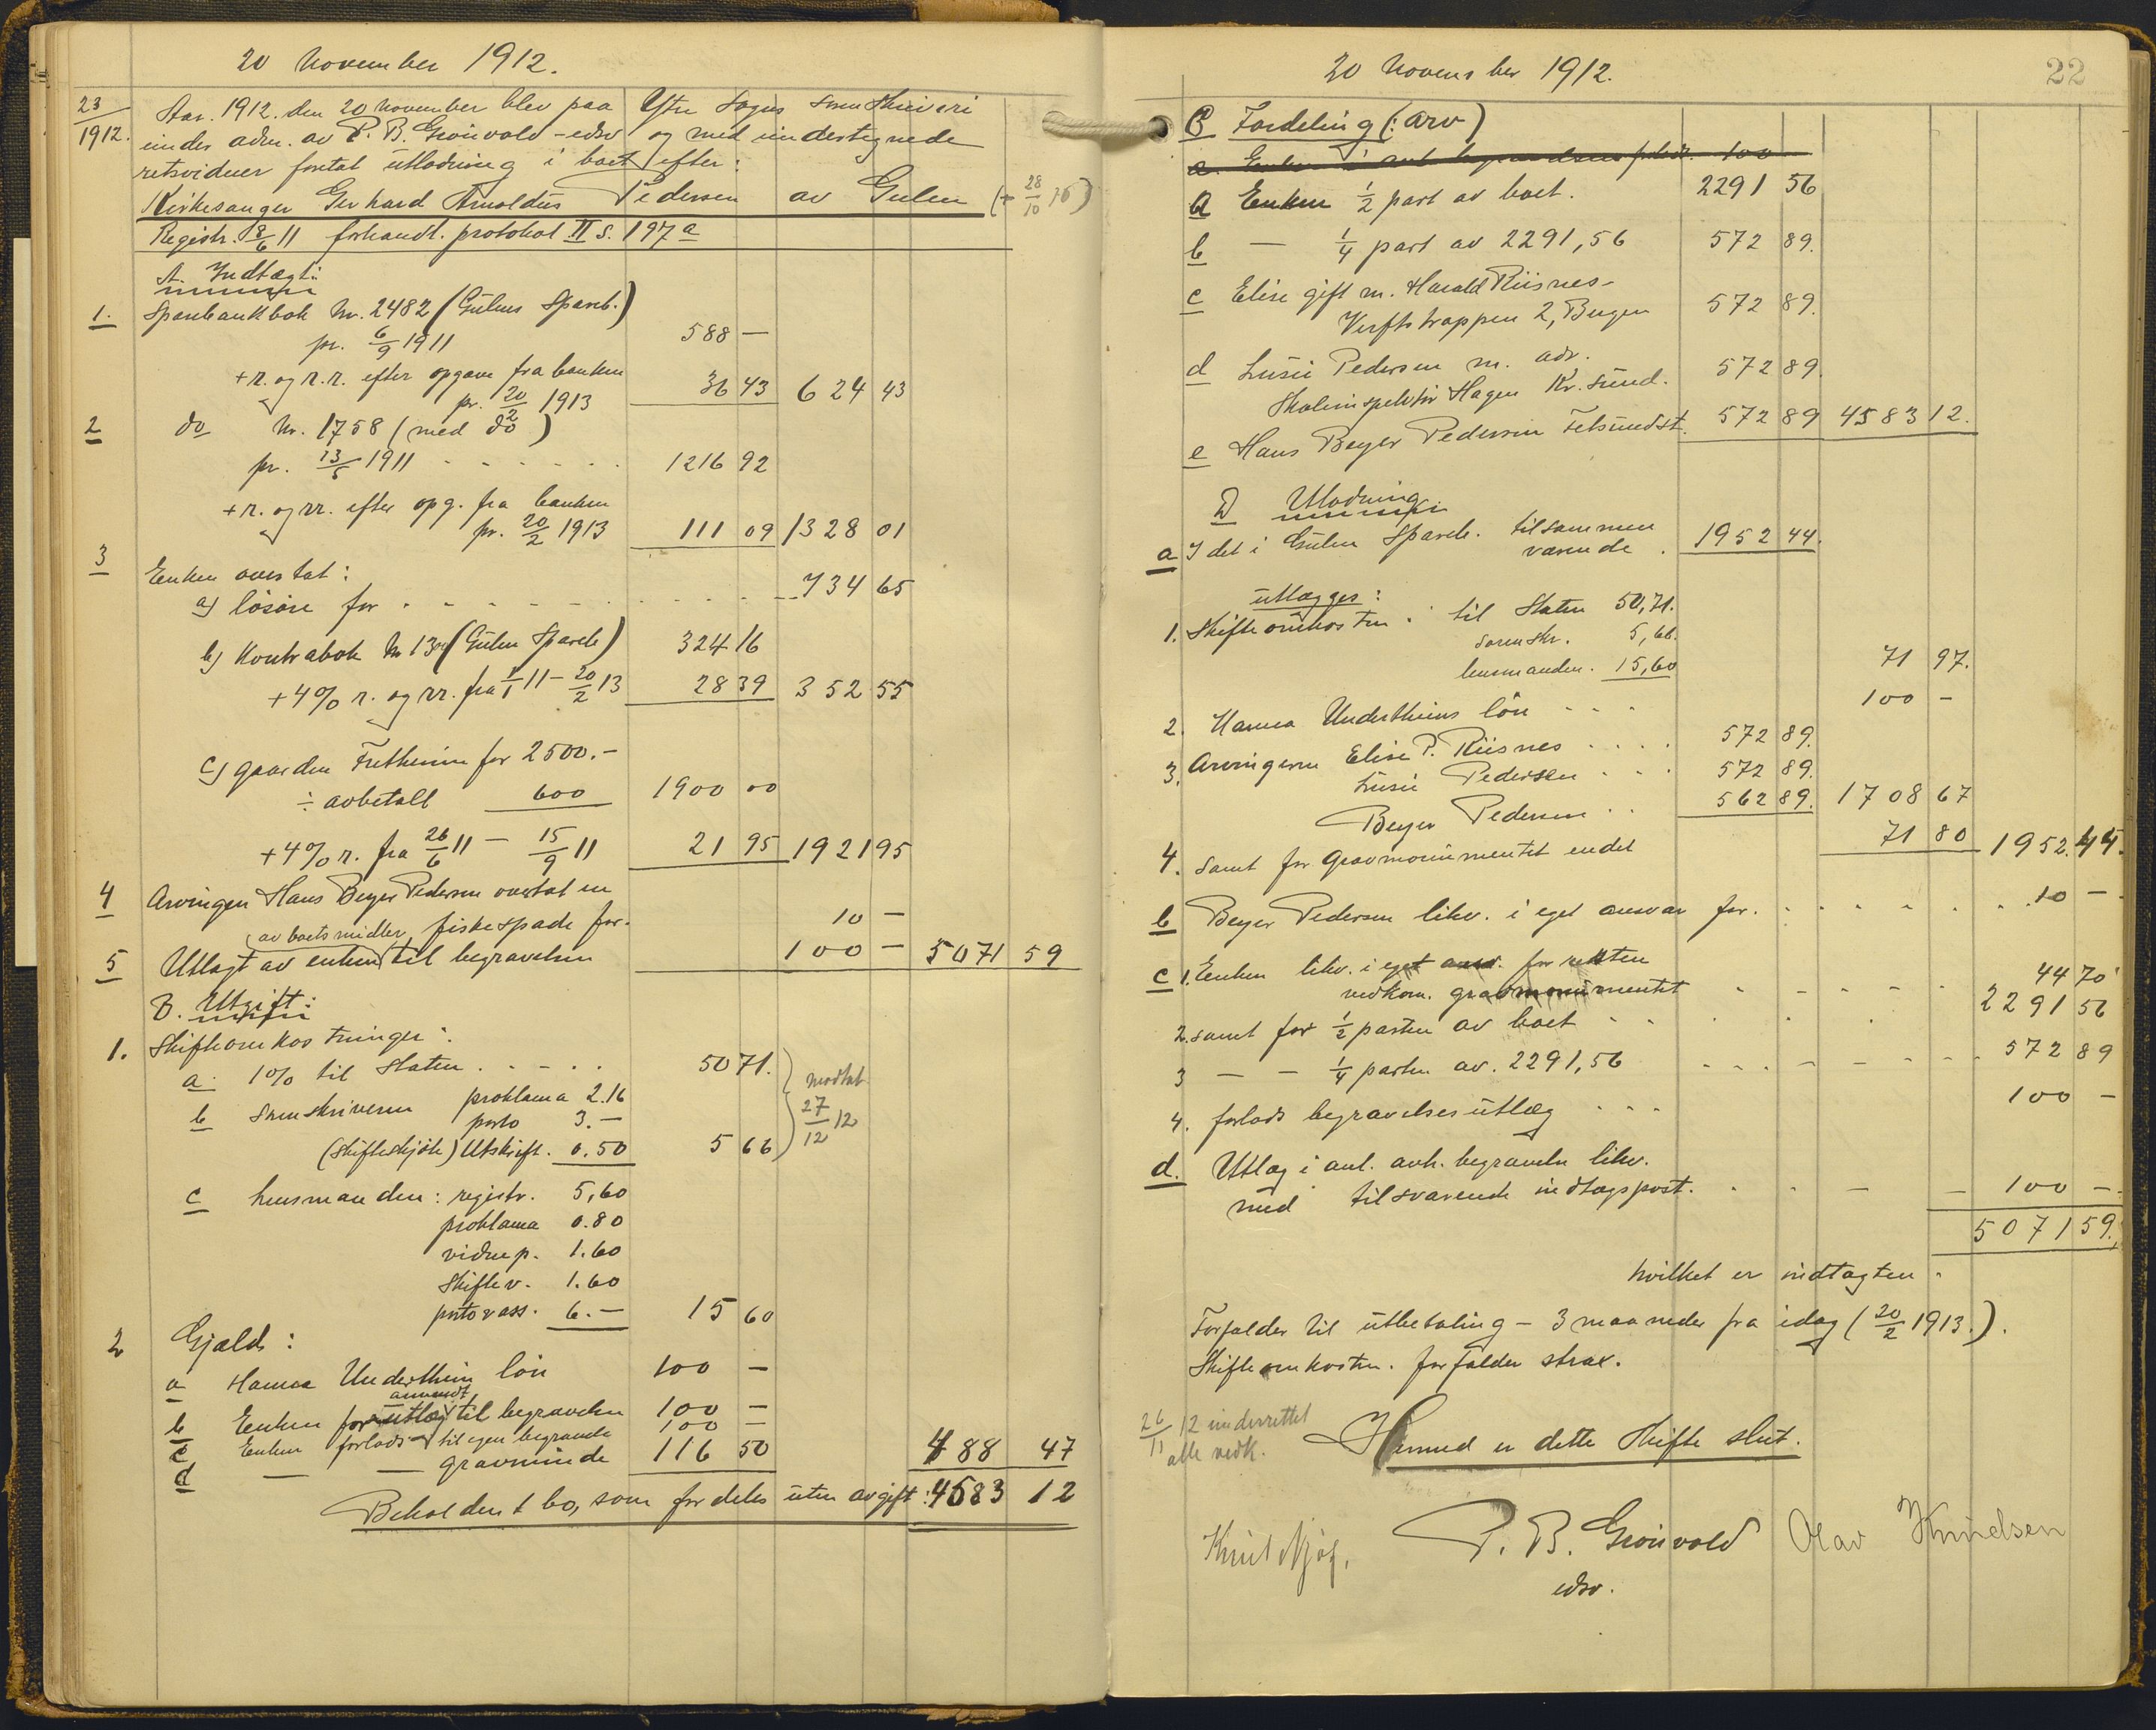 20 November 1912.
23/1912. Aar. 1912. den 20 November blev paa Ytre Sogns sorenskriveri
under adm. av P. B. Grönvold - edsv og med undertegnede
retsvidner foretat utlodning i boet efter:
Kirkesanger Gerhard Arnoldus Pedersen av Gulen (+ 28/10 10)
Registr. 8/6 11 forhandl. protokol II s. 197 a
A. Indtægt:
1. Sparebankbok Nr. 2482 (Gulens Spareb.)
pr. 6/9 1911 588 —
+ r. og r.r. efter opgave fra banken
pr. 20/2 1913 36 43 624 43
2 do Nr. 1758 (med do)
pr. 13/5 1911 - - - - - - 1216 92
+ r. og rr. efter opg. fra banken
pr. 20/2 1913 111 09 1328 01
3 Enken overtat:
a) lösöre for - - - - - - - - 734 65
b) Kontrabok Nr 130 (Gulen Spareb) 324 16
+ 4% r. og rr. fra 1/1 11 - 20/2 13 28 39 352 55
c) gaarden Fretheim for 2500.-
÷ avbetalt 600 1900 00
+ 4% r. fra 26/6 11 — 15/9 11 21 95 1921 95
4 Arvingen Hans Beyer Pedersen overtat en
fiskespade for. 10 —
5 Utlagt av enken av boets midler til begravelsen 100 — 5071 59
B. Utgift:
1. Skifteomkostninger:
a. 1% til Staten . . - - . 50 71.
b Sorenskriveren proklama 2.16
porto 3.—
(skifteskjöte) Utskrift. 0.50 5 66
modtat 27/12 12
c Lensmanden: registr. 5,60
proklama 0.80
vidnep. 1.60
Skiftev. 1.60
porto v ass. 6.— 15 60
2 Gjæld:
a Hanna Undertheim lön 100 —
b Enken for utlæg anvendt til begravelsen 100 —
c Enken forlods til egen begravelse 100 —
d — — gravminde 116 50 488 47
Beholdent bo, som fordeles uten avgift: 4583 12
20 November 1912. 22
C Fordeling (: arv)
a. Enken begravelses 100
a Enken 1/2 part av boet. 2291 56
b — 1/4 part av 2291,56 572 89.
c Elise gift m. Harald Riisnes -
Verftstrappen 2, Bergen 572 89.
d Lusie Pedersen m. adr.
Skoleinspektör Hagen Kr. sund. 572 89.
e Hans Beyer Pedersen Felsundst. 572 89 4583 12.
D Utlodning
a I det i Gulen Spareb. tilsammen
værende . 1952 44.
utlægges:
1. Skifteomkostn. : til Staten 50,71.
Sorenskr. 5,66.
lensmanden. 15,60 71 97.
2. Hanna Undertheims lön - - - 100 -
3. Arvingerne Elise P. Riisnes . . . . 572 89.
Lusie Pedersen . . . 572 89.
Beyer Pedersen . . 562 89. 1708 67
4. samt for gravmonumentet endel 71 80 1952.44.
b Beyer Pedersen likv. i eget ansvar for. . . . . . . . . 10 —
c 1. Enken likv. i eget ansv. for resten
vedkom. gravmonumentet - - - - - 44 70
2. samt for 1/2 parten av boet - - . . . 2291 56
3 — — 1/4 parten av. 2291,56 - - - - - - - 572 89
4. forlods begravelsesutlæg - - - 100 —
d. Utlæg i anl. avh. begravelse likv.
med tilsvarende indtægspost. - - — — 100 —
5071 59.
hvilket er indtægten.
Forfalder til utbetaling - 3 maaneder fra idag (20/2 1913.).
Skifteomkostn. forfalder strax.
26/11 12 underrettet
alle vedk.
Hermed er dette Skifte slut.
P. B. Grönvold
edsv.
Olav Knudsen